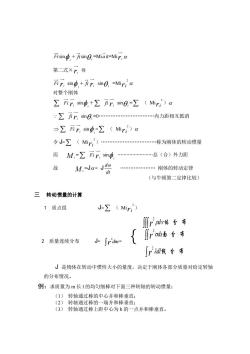 Fi sinφi + fi sinθi=Mia it=Mi ri α
第二式× ri 得
Fi ri sinφi+ fi ri sinθi =Mi ri² α
对整个刚体
∑ Fi ri sinφi+∑ fi ri sinθi=∑ ( Mi ri² ) α
∵∑ fi ri sinθi=0------------------------内力距相互抵消
⇒∑ Fi ri sinφi=∑ ( Mi ri² ) α
令 J=∑ ( Mi ri² ) ------------------------称为刚体的转动惯量
而 Mz=∑ Fi ri sinφi ----------------总（合）外力距
故 Mz=Jα= J dω/dt ---------------- 刚体的转动定律
（与牛顿第二定律比较）
三 转动惯量的计算
1 质点组 J=∑ ( Mi ri² )
2 质量连续分布 J= ∫r²dm= {
∭r²ρdv体 分 布
∬r²σds面 分 布
∫r²λdl线 分 布
J 是物体在转动中惯性大小的量度，决定于刚体各部分质量对给定转轴
的分布情况。
例：求质量为 m 长 l 的均匀细棒对下面三种转轴的转动惯量：
（1） 转轴通过棒的中心并和棒垂直；
（2） 转轴通过棒的一端并和棒垂直；
（3） 转轴通过棒上距中心为 h 的一点并和棒垂直。